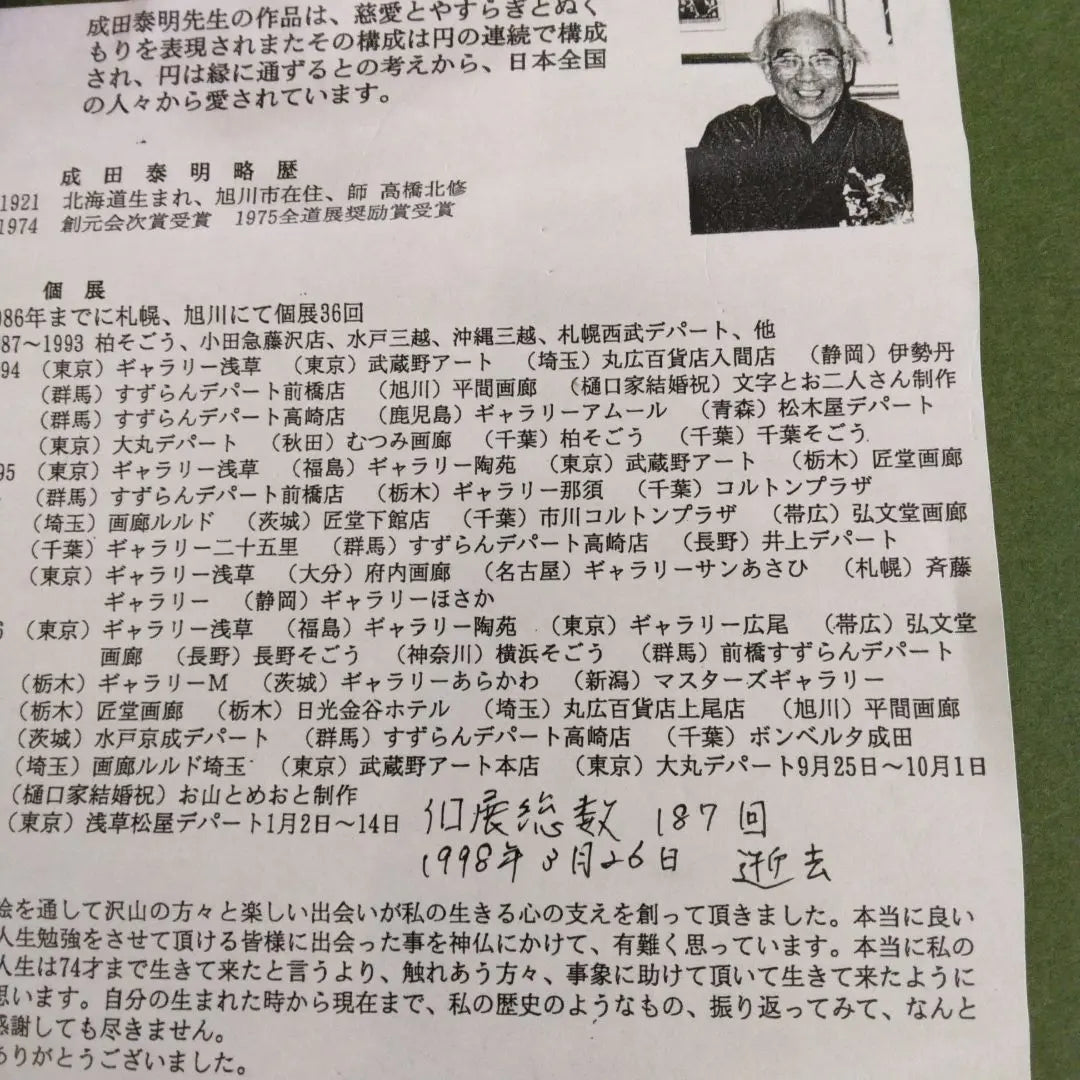 成田泰明先生の作品は、慈愛とやすらぎとぬく
もりを表現されまたその構成は円の連続で構成
され、円は縁に通ずるとの考えから、日本全国
の人々から愛されています。
成田泰明略歴
1921 北海道生まれ、旭川市在住、師 高橋北修
1974 創元会次賞受賞 1975全道展奨励賞受賞
個展
986年までに札幌、旭川にて個展36回
87～1993 柏そごう、小田急藤沢店、水戸三越、沖縄三越、札幌西武デパート、他
94 （東京）ギャラリー浅草 （東京）武蔵野アート （埼玉）丸広百貨店入間店 （静岡）伊勢丹
（群馬）すずらんデパート前橋店 （旭川）平間画廊 （樋口家結婚祝）文字とお二人さん制作
（群馬）すずらんデパート高崎店 （鹿児島）ギャラリーアムール （青森）松木屋デパート
（東京）大丸デパート （秋田）むつみ画廊 （千葉）柏そごう （千葉）千葉そごう
95 （東京）ギャラリー浅草 （福島）ギャラリー陶苑 （東京）武蔵野アート （栃木）匠堂画廊
（群馬）すずらんデパート前橋店 （栃木）ギャラリー那須 （千葉）コルトンプラザ
（埼玉）画廊ルルド （茨城）匠堂下館店 （千葉）市川コルトンプラザ （帯広）弘文堂画廊
（千葉）ギャラリー二十五里 （群馬）すずらんデパート高崎店 （長野）井上デパート
（東京）ギャラリー浅草 （大分）府内画廊 （名古屋）ギャラリーサンあさひ （札幌）斉藤
ギャラリー （静岡）ギャラリーほさか
6 （東京）ギャラリー浅草 （福島）ギャラリー陶苑 （東京）ギャラリー広尾 （帯広）弘文堂
画廊 （長野）長野そごう （神奈川）横浜そごう （群馬）前橋すずらんデパート
（栃木）ギャラリーＭ （茨城）ギャラリーあらかわ （新潟）マスターズギャラリー
（栃木）匠堂画廊 （栃木）日光金谷ホテル （埼玉）丸広百貨店上尾店 （旭川）平間画廊
（茨城）水戸京成デパート （群馬）すずらんデパート高崎店 （千葉）ボンベルタ成田
（埼玉）画廊ルルド埼玉 （東京）武蔵野アート本店 （東京）大丸デパート9月25日～10月1日
（樋口家結婚祝）お山とめおと制作
（東京）浅草松屋デパート1月2日～14日 個展総数 187回
1998年3月26日 逝去
絵を通して沢山の方々と楽しい出会いが私の生きる心の支えを創って頂きました。本当に良い
人生勉強をさせて頂ける皆様に出会った事を神仏にかけて、有難く思っています。本当に私の
人生は74才まで生きて来たと言うより、触れあう方々、事象に助けて頂いて生きて来たように
思います。自分の生まれた時から現在まで、私の歴史のようなもの、振り返ってみて、なんと
感謝しても尽きません。
ありがとうございました。